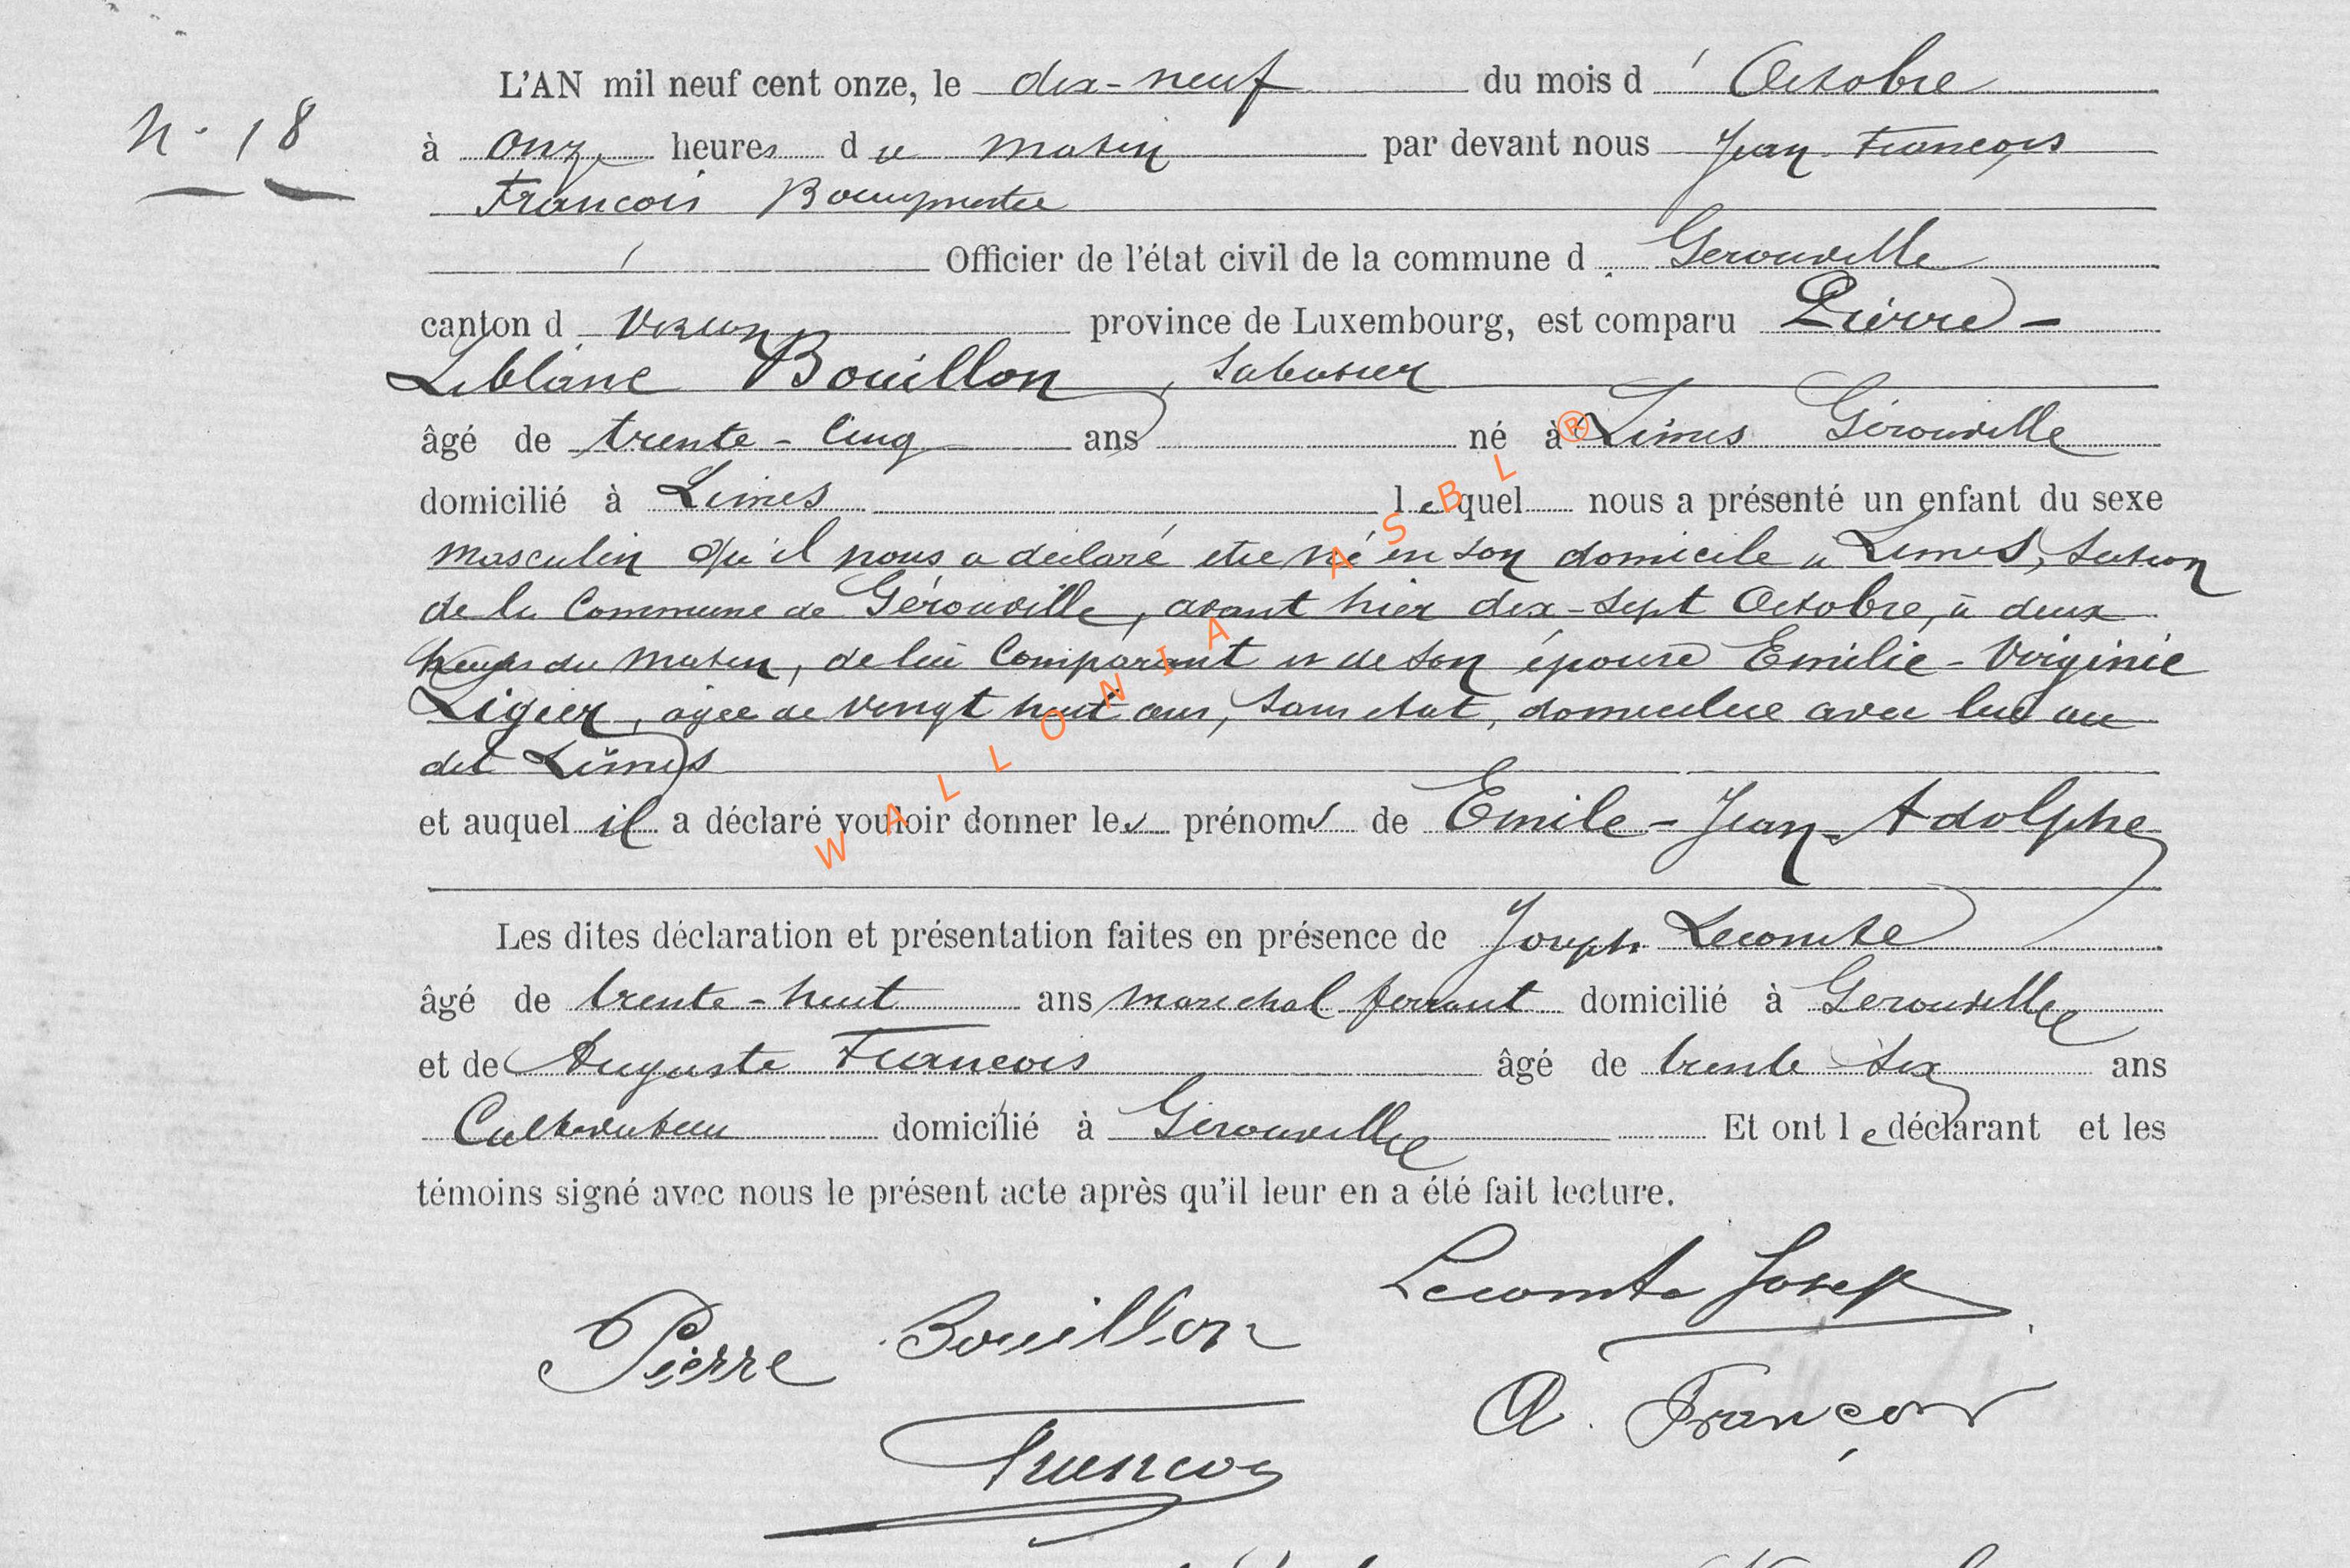 N° 18
L'AN mil neuf cent onze, le dix-neuf du mois d' Octobre
à onze heures du matin par devant nous Jean François
François Bourgmestre
Officier de l'état civil de la commune d Gerouville
canton d Virton province de Luxembourg, est comparu Pierre-
Leblanc Bouillon, Sabotier
âgé de trente-cinq ans né à Limes Gérouville
domicilié à Limes lequel nous a présenté un enfant du sexe
masculin qu'il nous a déclaré etre né en son domicile a Limes, section
de la Commune de Gérouville, avant hier dix-sept Octobre, à deux
heures du matin, de lui Comparant et de son épouse Emilie-Virginie
Ligier, agée de vingt huit ans, sans etat, domiciliee avec lui au
dit Limes
et auquel il a déclaré vouloir donner les prénoms de Emile-Jean-Adolphe
Les dites déclaration et présentation faites en présence de Joseph Lecomte
âgé de trente-huit ans marechal ferrant domicilié à Gerouville
et de Auguste Francois âgé de trente six ans
Cultivateur domicilié à Gerouville Et ont le déclarant et les
témoins signé avec nous le présent acte après qu'il leur en a été fait lecture.
Lecomte Josep
Pierre Bouillon
A. François
Francois
WALLONIA ASBL ®